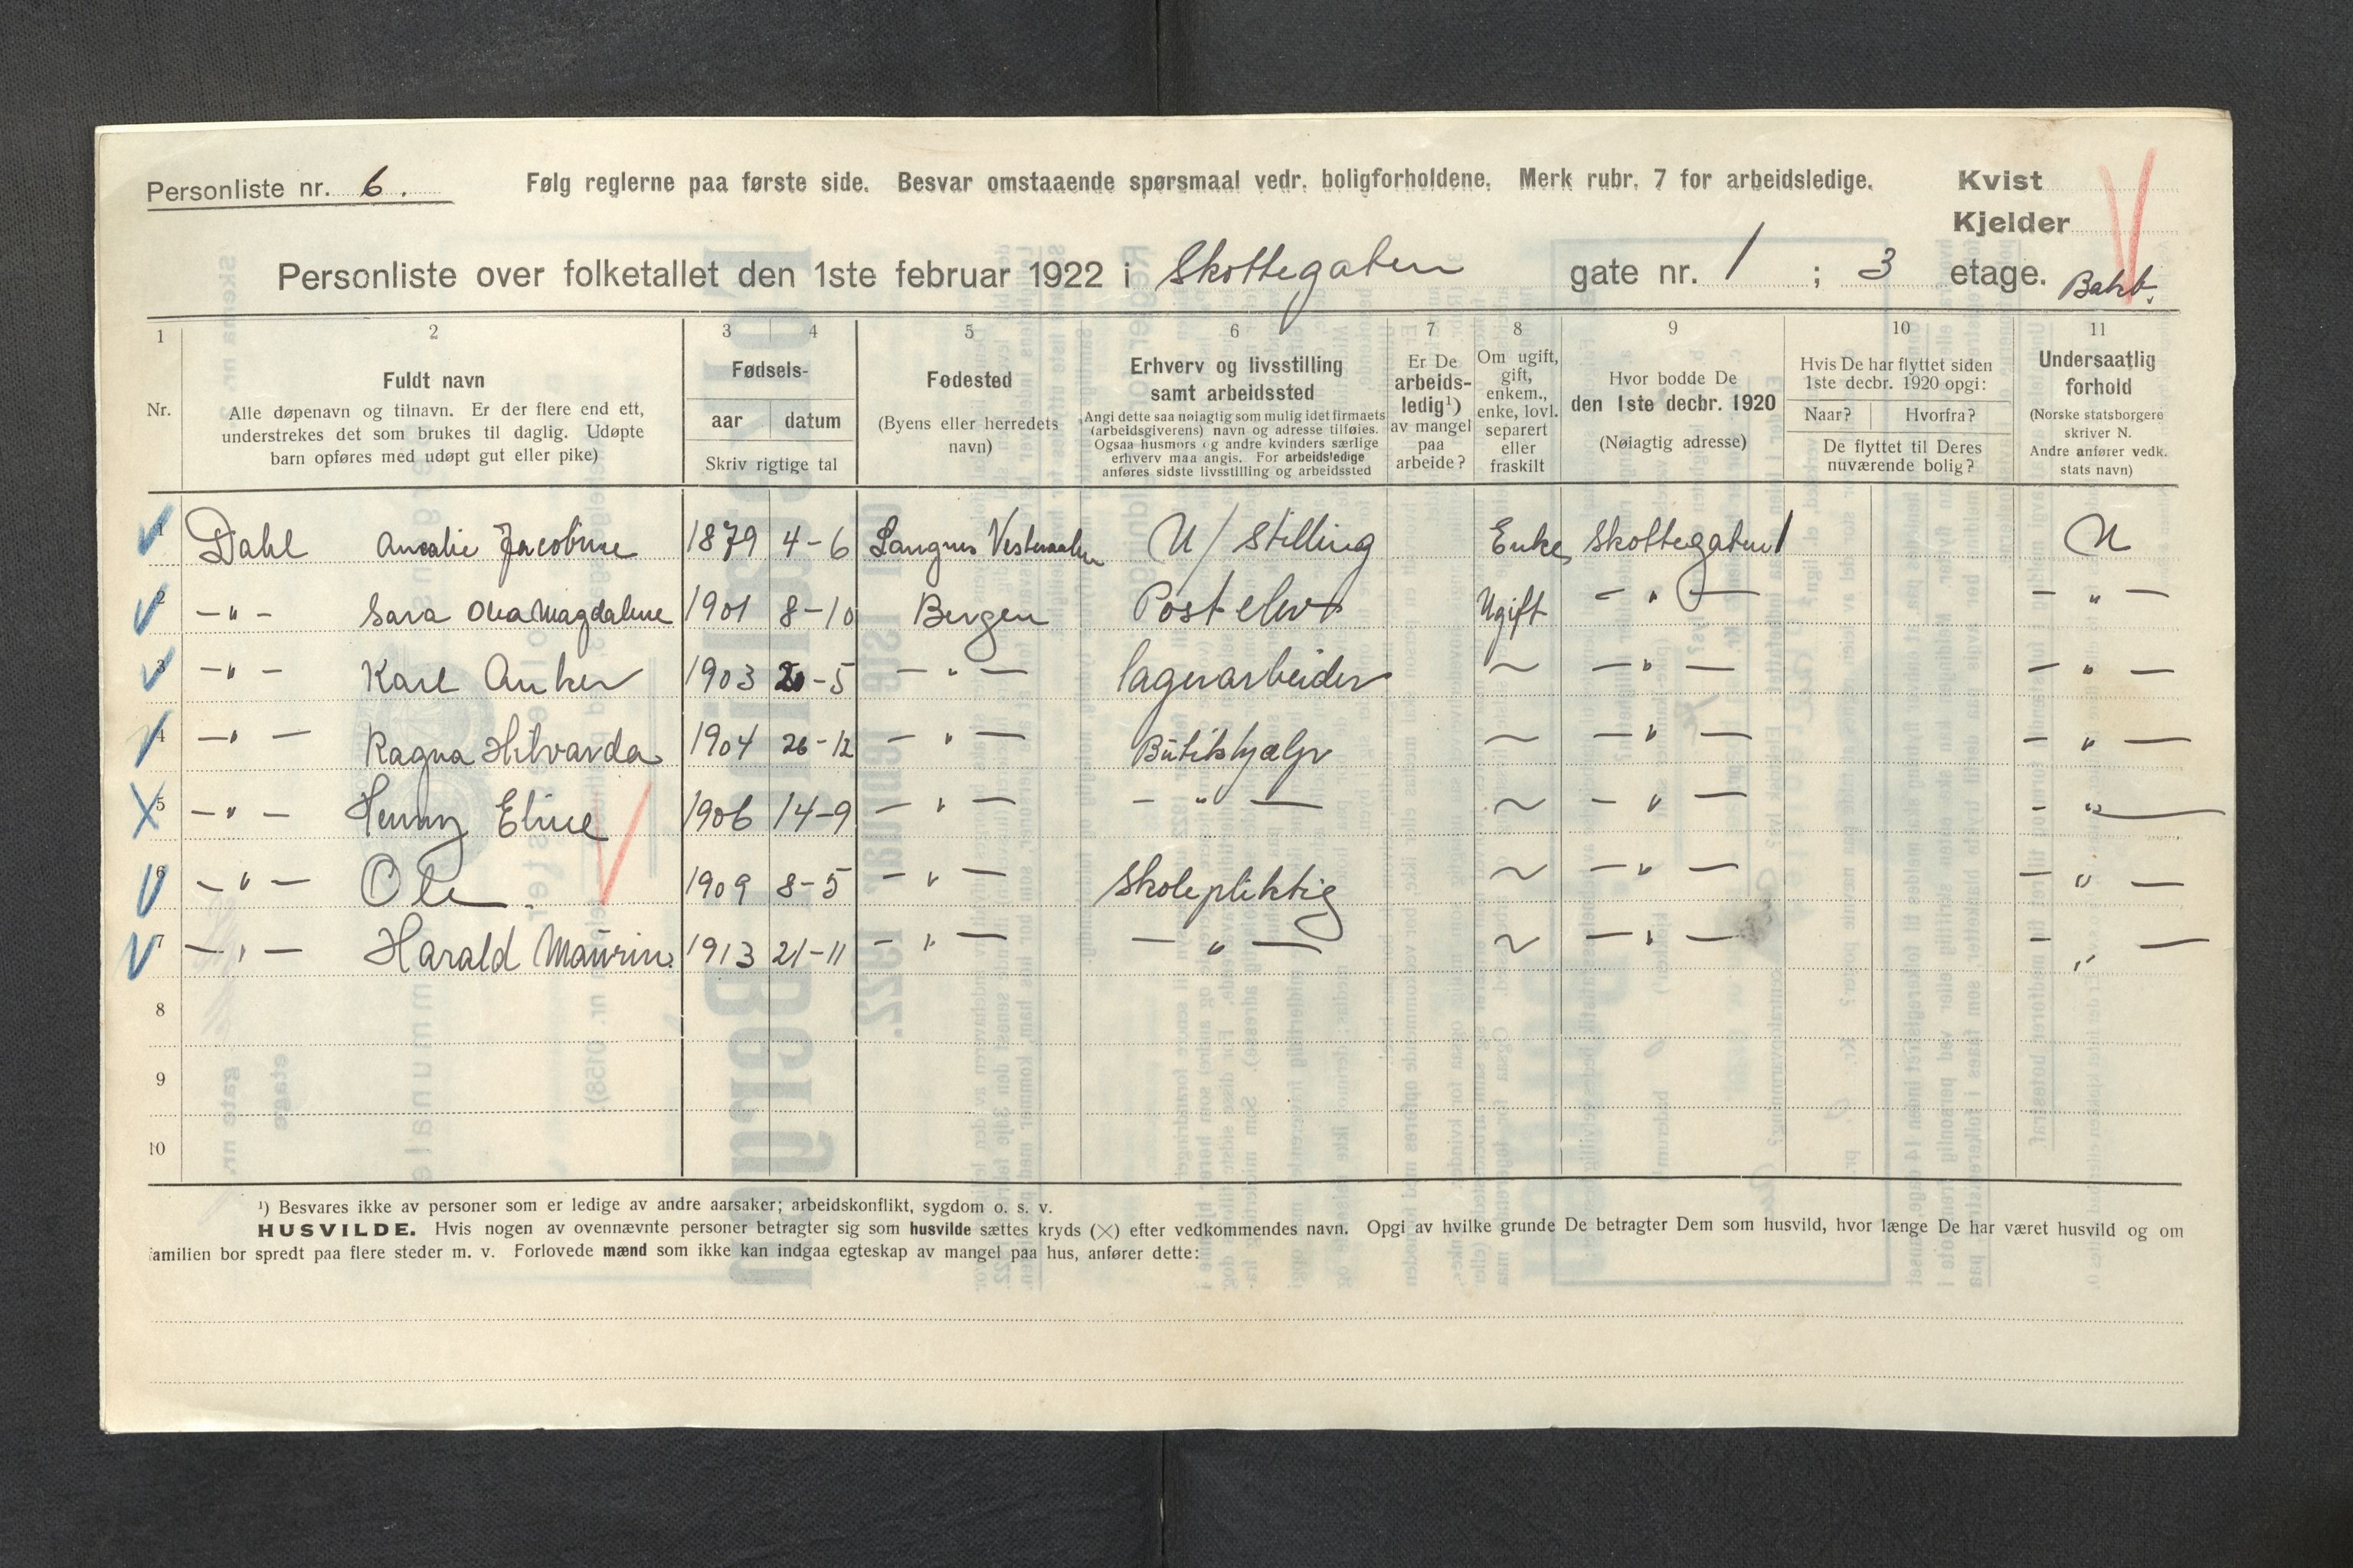 Personliste nr. 6.
Følg reglerne paa første side. Besvar omstaaende spørsmaal vedr. boligforholdene. Merk rubr. 7 for arbeidsledige.
Kvist
Kjelder
Personliste over folketallet den 1ste februar 1922 i Skottegaten gate nr. 1 ; 3 etage. Bakb.
1 2 3 4 5 6 7 8 9 10 11
Nr.
Fuldt navn
Alle døpenavn og tilnavn. Er der flere end ett,
understrekes det som brukes til daglig. Udøpte
barn opføres med udøpt gut eller pike)
Fødsels-
aar datum
Skriv rigtige tal
Fødested
(Byens eller herredets
navn)
Erhverv og livsstilling
samt arbeidssted
Angi dette saa nøiagtig som mulig idet firmaets
(arbeidsgiverens) navn og adresse tilføies.
Ogsaa husmors og andre kvinders særlige
erhverv maa angis. For arbeidsledige
anføres sidste livsstilling og arbeidssted
Er De
arbeids-
ledig¹)
av mangel
paa
arbeide?
Om ugift,
gift,
enkem.,
enke, lovl.
separert
eller
fraskilt
Hvor bodde De
den 1ste decbr. 1920
(Nøiagtig adresse)
Hvis De har flyttet siden
1ste decbr. 1920 opgi:
Naar? Hvorfra?
De flyttet til Deres
nuværende bolig?
Undersaatlig
forhold
(Norske statsborgere
skriver N.
Andre anfører vedk.
stats navn)
1 Dahl Amalie Jacobine 1879 4-6 Langnes Vesteraalen U/stilling Enke Skottegaten 1 N
2 -"- Sara Olea Magdalene 1901 8-10 Bergen Postelev Ugift -"- -"-
3 -"- Karl Anker 1903 20-5 -"- lagerarbeider ~ -"- -"-
4 -"- Ragna Hilvarda 1904 26-12 -"- Butikhjælp ~ -"- -"-
5 -"- Henny Eline 1906 14-9 -"- -"- ~ -"- -"-
6 -"- Ole 1909 8-5 -"- Skolepliktig ~ -"- -"-
7 -"- Harald Maurin 1913 21-11 -"- -"- ~ -"- -"-
8
9
10
¹) Besvares ikke av personer som er ledige av andre aarsaker; arbeidskonflikt, sygdom o. s. v.
HUSVILDE. Hvis nogen av ovennævnte personer betragter sig som husvilde sættes kryds (×) efter vedkommendes navn. Opgi av hvilke grunde De betragter Dem som husvild, hvor længe De har været husvild og om
familien bor spredt paa flere steder m. v. Forlovede mænd som ikke kan indgaa egteskap av mangel paa hus, anfører dette: